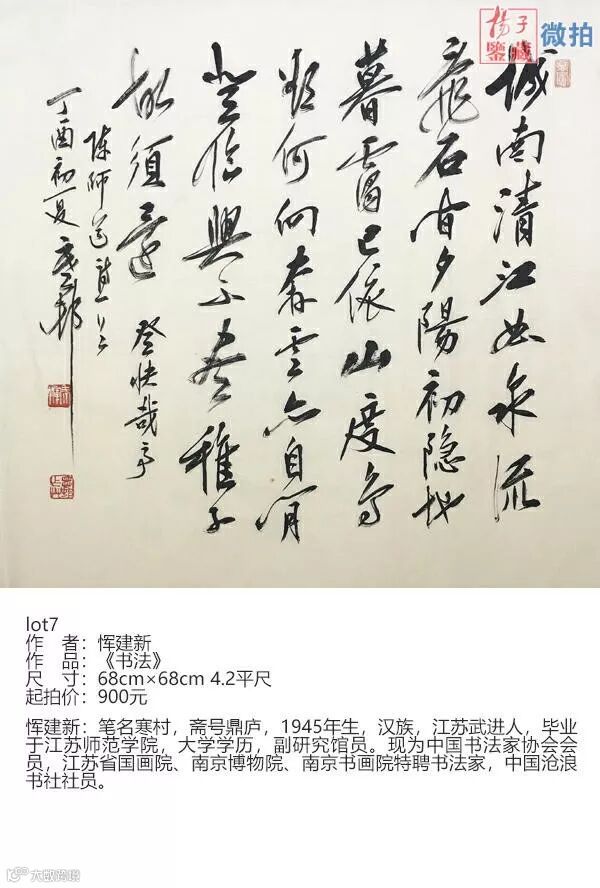 揚子
鑒藏
微拍
城南清江曲泉流
乱石间夕陽初隐地
暮靄已依山度鸟
欲何向奔雲亦自閒
登临興不尽稚子
故須還 登快哉亭
陈師道詩一首
丁酉初夏寒邨
lot7
作 者：恽建新
作 品：《书法》
尺 寸：68cm×68cm 4.2平尺
起拍价：900元
恽建新：笔名寒村，斋号鼎庐，1945年生，汉族，江苏武进人，毕业
于江苏师范学院，大学学历，副研究馆员。现为中国书法家协会会
员，江苏省国画院、南京博物院、南京书画院特聘书法家，中国沧浪
书社社员。
大数跨境